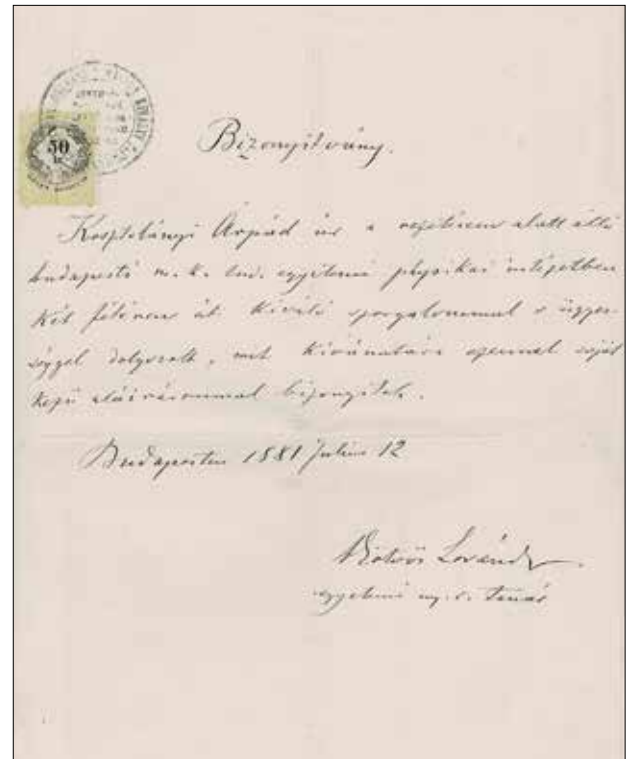 50
kr
Bizonyítvány.
Kosztolányi Árpád úr a vezetésem alatt álló
budapesti m. k. tud. egyetemi physikai intézetben
két féléven át kiváló szorgalommal s ügyes-
séggel dolgozott, mit kívánatára ezennel saját
kezű aláírásommal bizonyítok.
Budapesten 1881 Julius 12
Eötvös Loránd
egyetemi ny. r. tanár